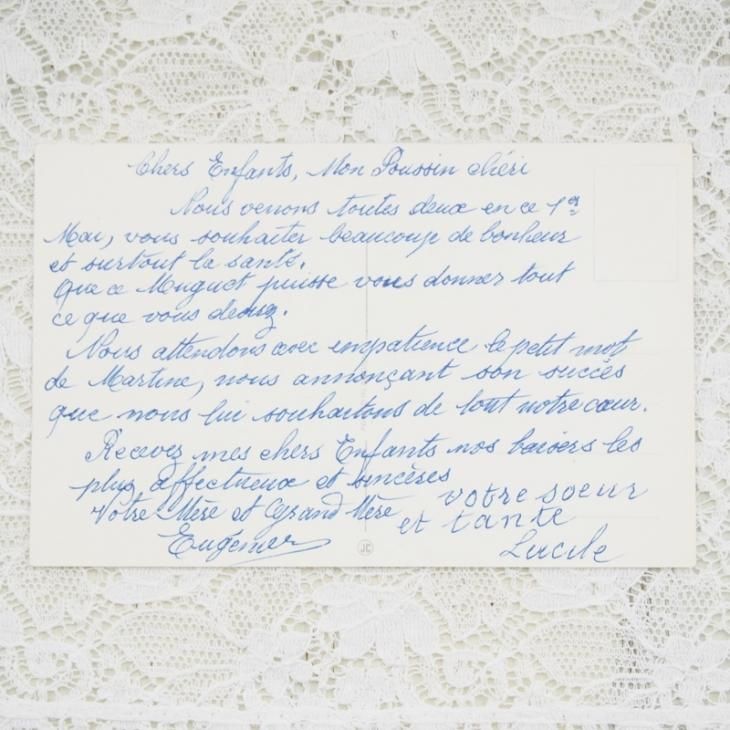 Chers Enfants, Mon Poussin chéri
Nous venons toutes deux en ce 1er
Mai, vous souhaiter beaucoup de bonheur
et surtout la santé.
Que ce Muguet puisse vous donner tout
ce que vous desirez.
Nous attendons avec empatience le petit mot
de Martine, nous annonçant son succès
que nous lui souhaitons de tout notre cœur.
Recevez mes chers Enfants nos baisers les
plus affectueux et sincères
votre soeur
Votre Mère et Grand Mère
et tante
Eugénie
Lucile
JC